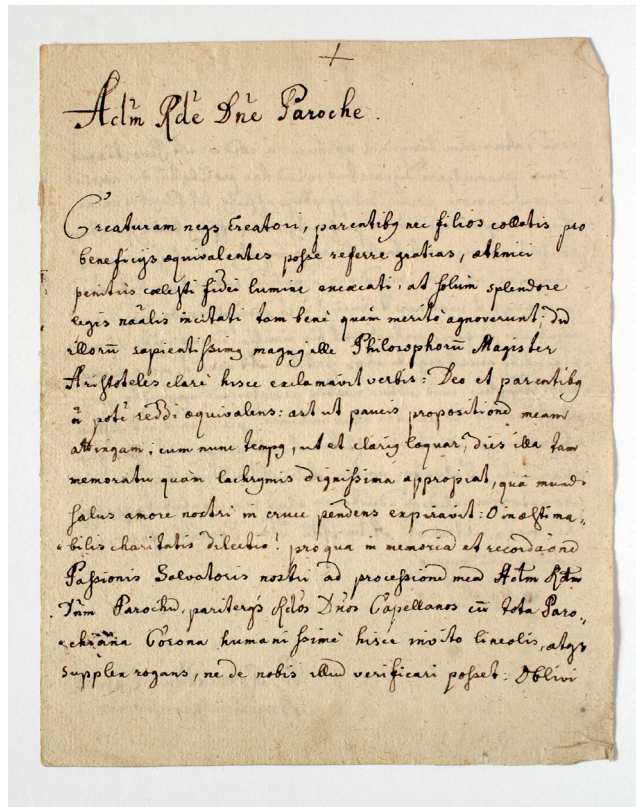 Adm̃ Rde Dne Paroche.
Creaturam neqȝ Creatori, parentibȝ nec filios collatis pro
beneficijs æquivalentes posse referre gratias, æthnici
penitus cœlesti fidei lumine excæcati, at solum splendore
legis nãalis incitati tam bene quàm meritò agnoverunt; dũ
illorũ sapientissimȝ magnȝ ille Philosophorũ Magister
Aristoteles clarè hisce exclamavit verbis: Deo et parentibȝ
ñ potẽ reddi æquivalens: ast ut paucis propositionẽ meam
attingam; cum nunc tempȝ, ut et clariȝ loquar, dies illa tam
memoratu quàm lachrymis dignissima appropiat, quâ mundi
salus amore nostri in cruce pendens expiravit: O inæstima„
„bilis charitatis dilectio! pro qua in memoria et recordãonẽ
Passionis Salvatoris nostri ad processionẽ meã Adm̃ Rdm̃
Dnm̃ Parochũ, pariterqȝ Rdos Dños Capellanos cũ tota Paro„
„chiana Corona humanissimè hisce invito lineolis, atqȝ
supplex rogans, ne de nobis illud verificari posset: Oblivi